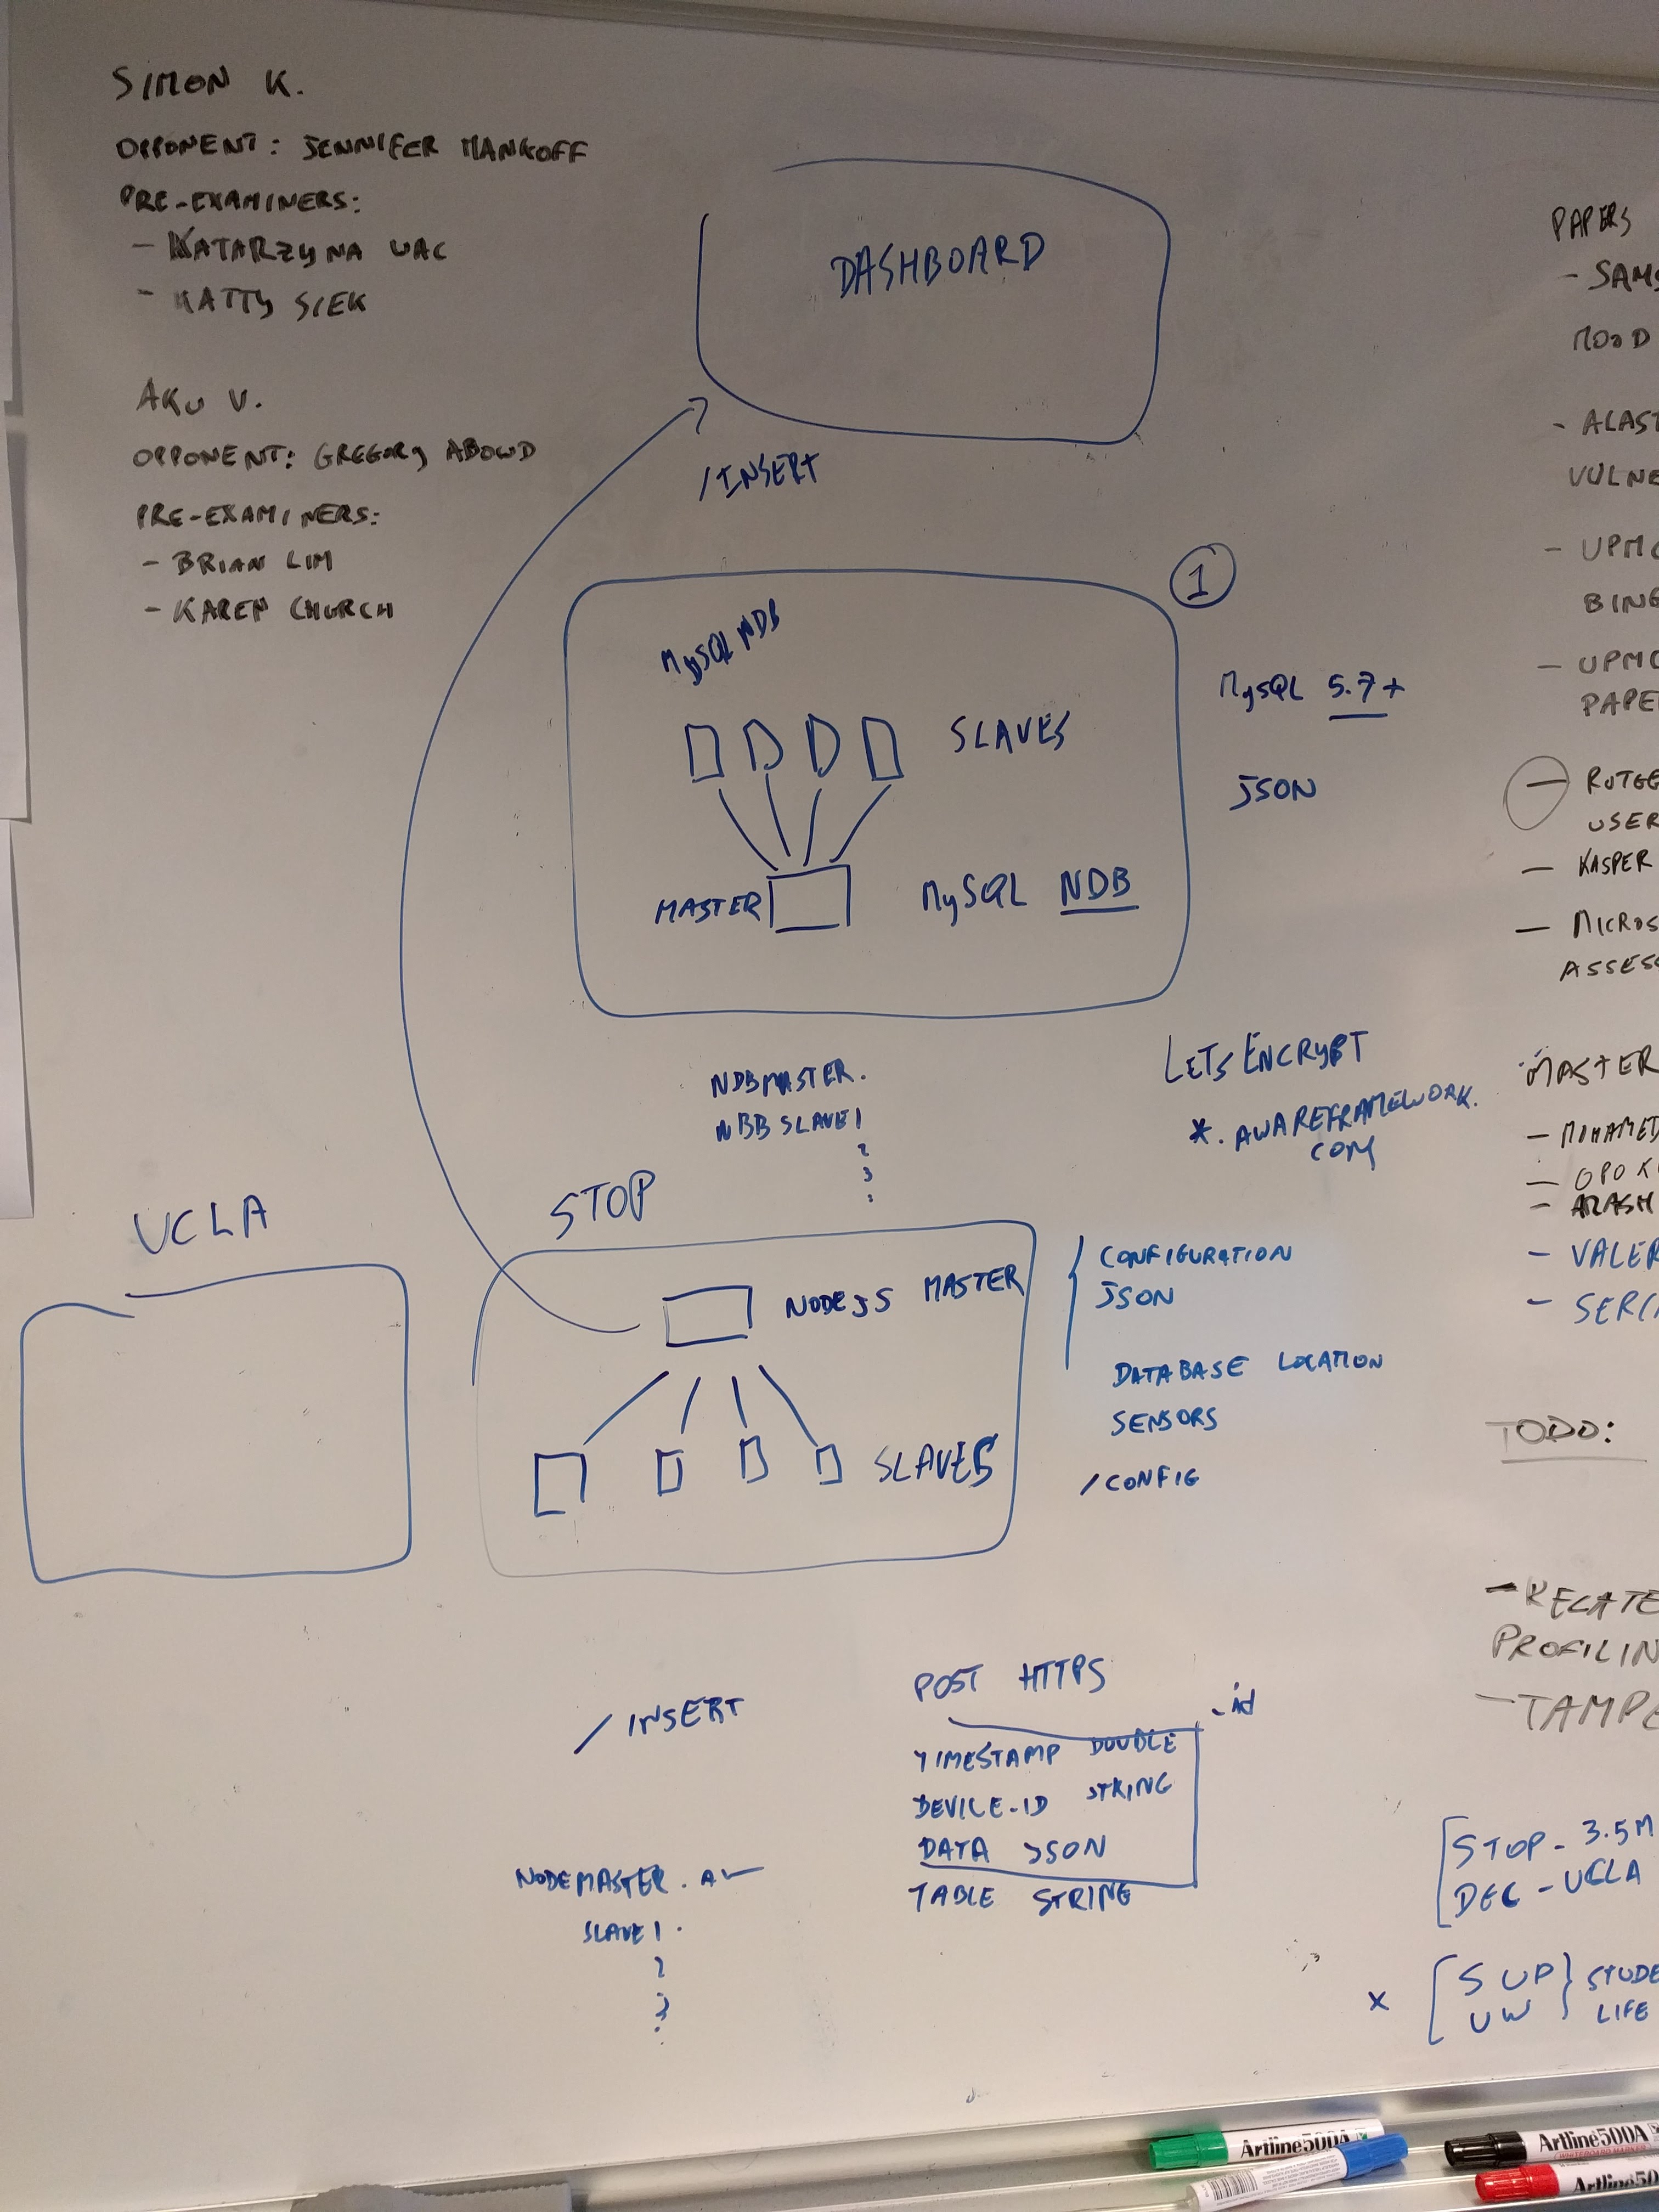 SIMON K.
OPPONENT: JENNIFER MANKOFF
PRE-EXAMINERS:
- KATARZYNA WAC
- KATTY SIEK
AKU V.
OPPONENT: GREGORY ABOWD
PRE-EXAMINERS:
- BRIAN LIM
- KAREN CHURCH
DASHBOARD
/INSERT
1
MySQL NDB
SLAVES
MASTER
MySQL NDB
MySQL 5.7+
JSON
NDBMASTER.
NBB SLAVE1
2
3
:
LETS ENCRYBT
*. AWAREFRAMEWORK.
COM
UCLA
STOP
NODEJS MASTER
SLAVES
CONFIGURATION
JSON
DATABASE LOCATION
SENSORS
/CONFIG
/INSERT
POST HTTPS
_id
TIMESTAMP DOUBLE
DEVICE-ID STRING
DATA JSON
TABLE STRING
NODEMASTER.
SLAVE1.
2
3
:
PAPERS
- SAMS
MOOD
- ALAST
VULNE
- UPMC
BING
- UPMC
PAPE
- RUTGE
USER
- KASPER
- MICROS
ASSES
MASTER
- MOHAMED
- OPOK
- ARASH
- VALER
- SERI
TODO:
- RELATE
PROFILIN
- TAMPE
STOP - 3.5M
DEC - UCLA
x
S UP } STUDE
UW LIFE
Artline500A
Artline500A
WHITEBOARD MARKER
Artline50